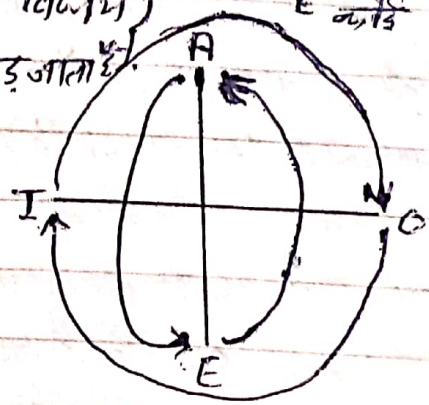 E कोई
ड़ जाता है
A
I O
E